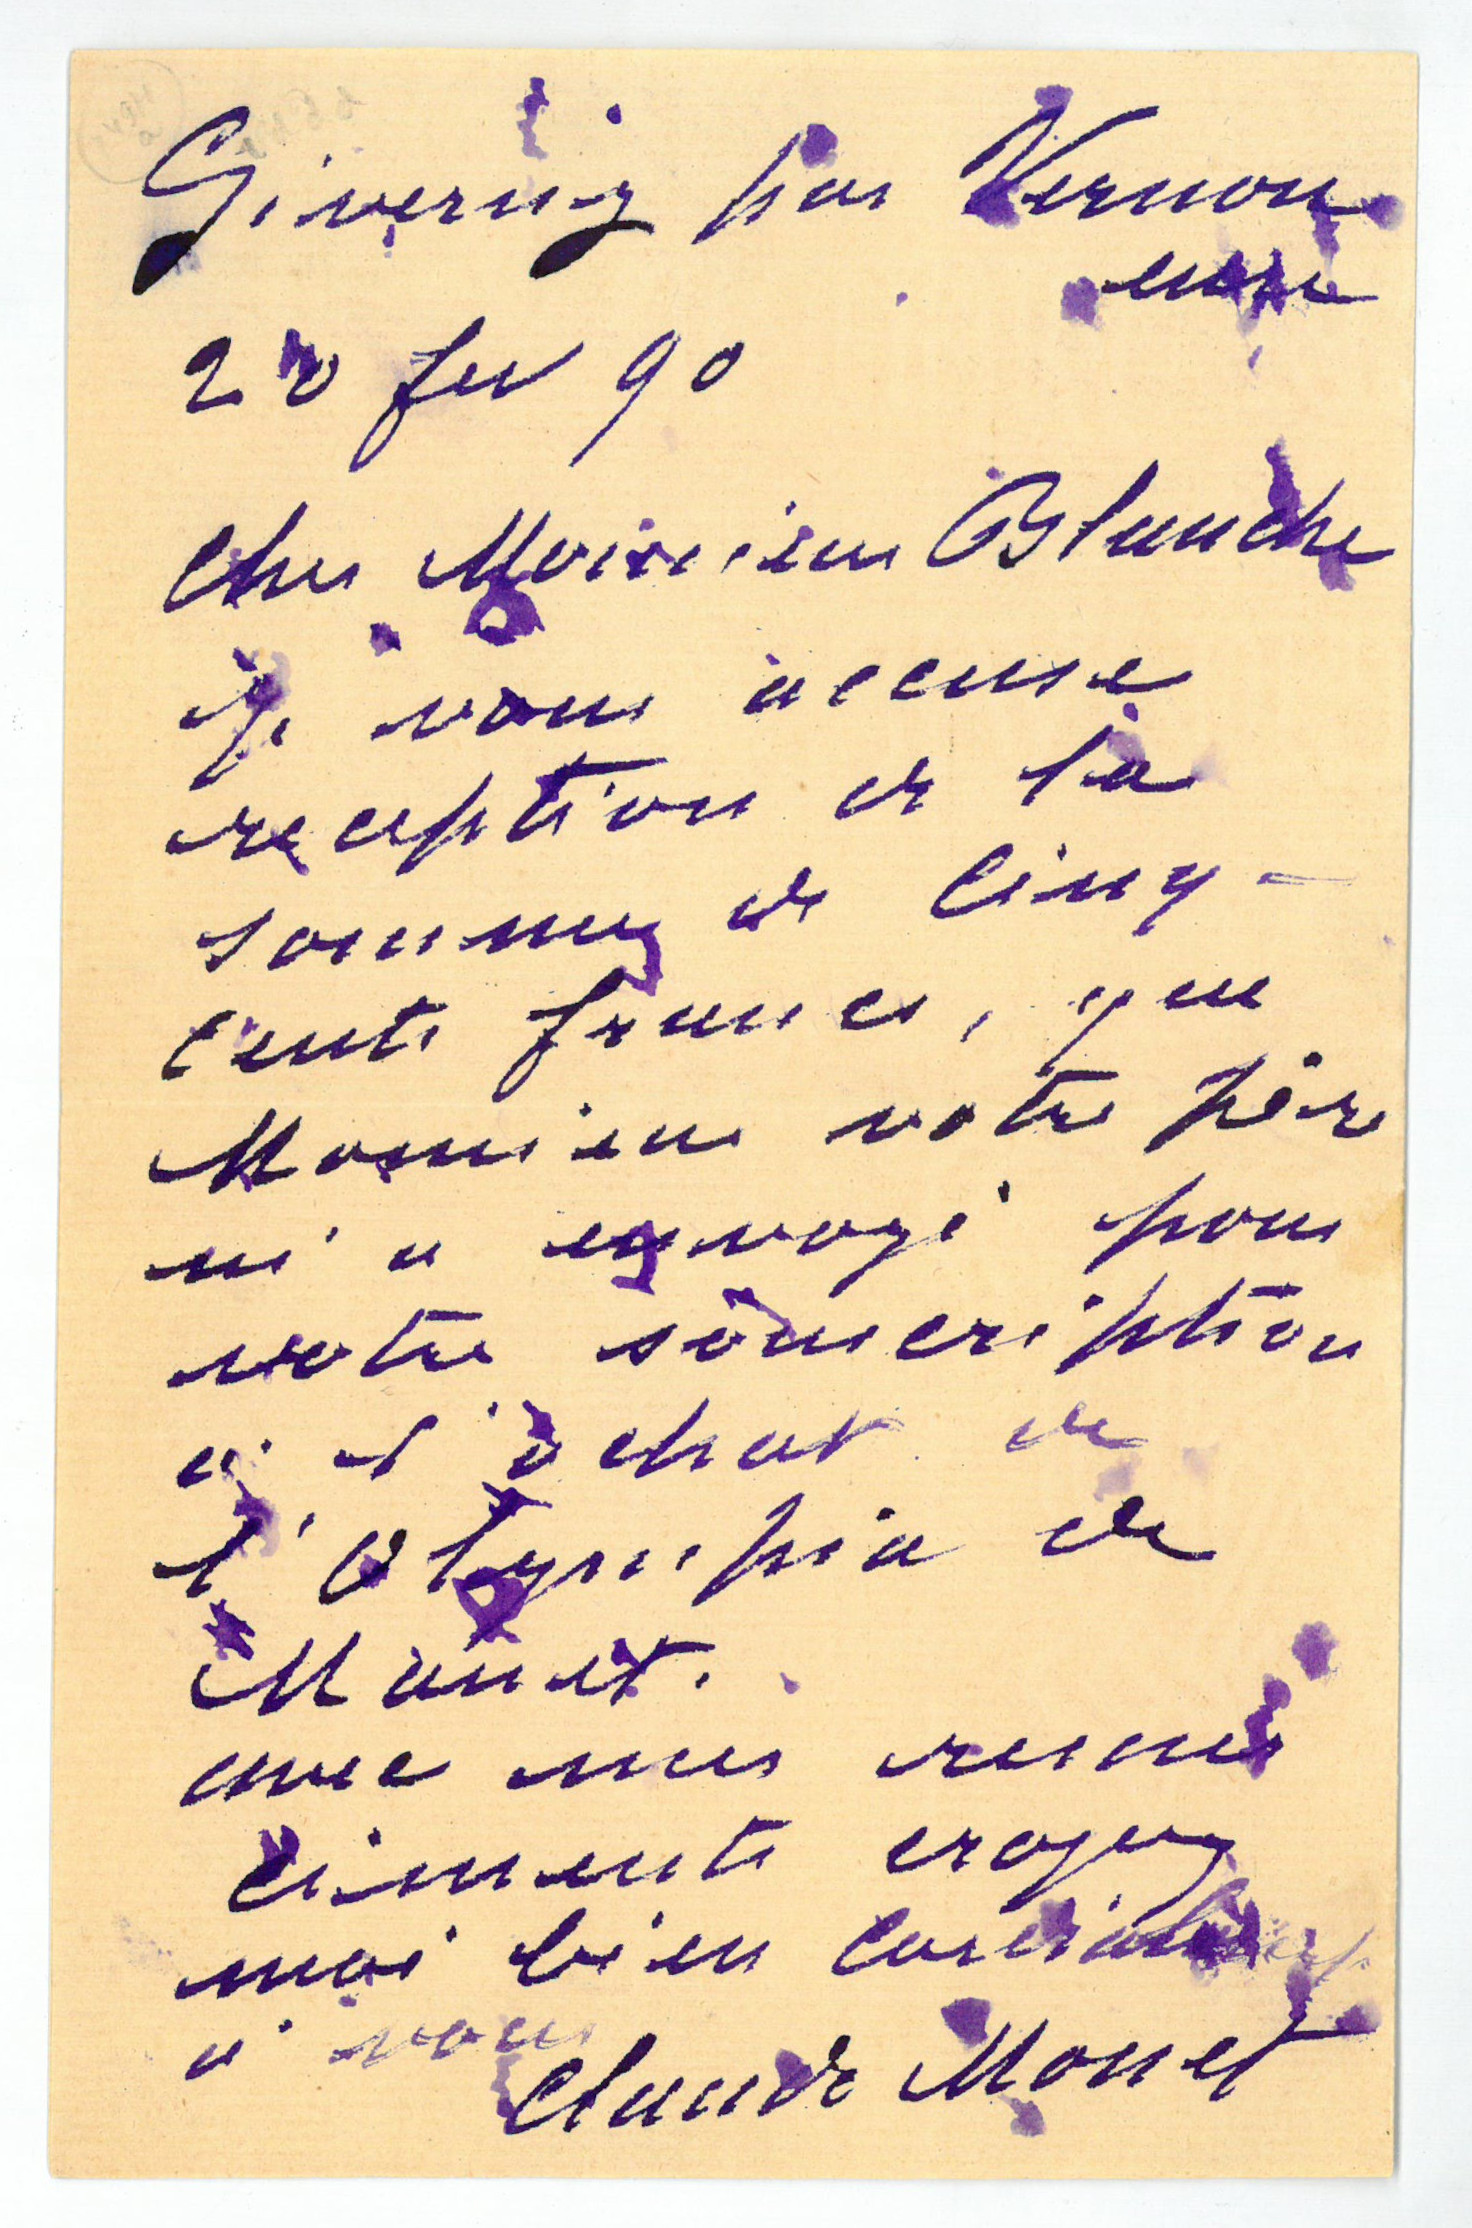 Giverny par Vernon
eure
20 fev 90
Cher Monsieur Blanche
Je vous accuse
reception de la
somme de Cinq-
cents francs, que
Monsieur votre père
m'a envoyé pour
votre souscription
à l'achat de
l'Olympia de
Manet.
avec mes remer
ciments croyez
moi bien Cordialement
à vous
Claude Monet